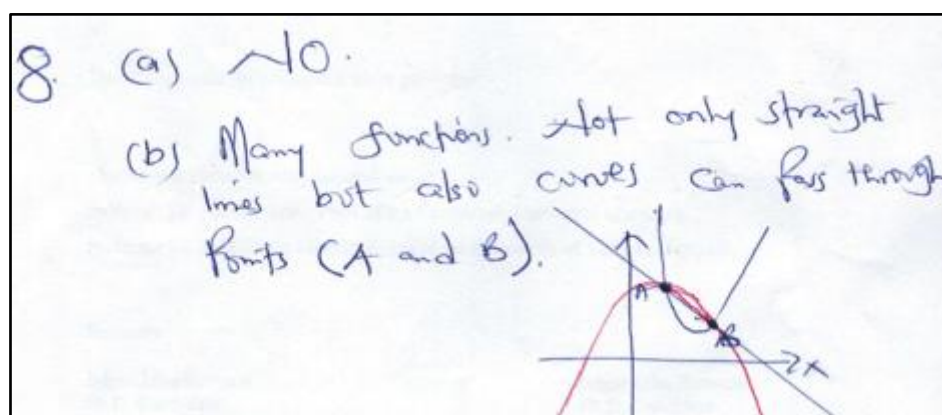 8. (a) NO.
(b) Many functions. Not only straight
lines but also curves can pass through
Points (A and B).
A
B
x